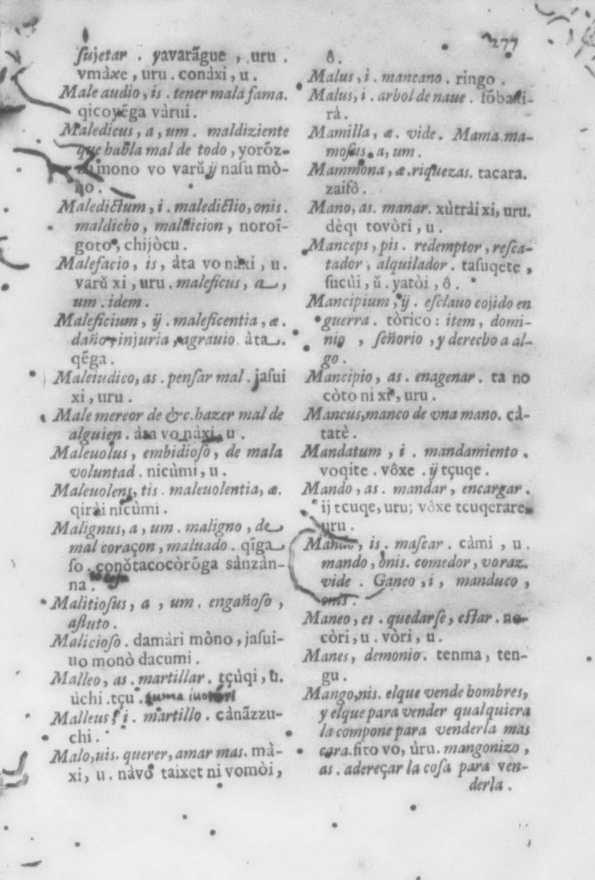 277
sujetar . yavarãgue , uru .
vmàxe , uru . conàxi , u .
Male audio, is . tener mala fama.
qicoyẽga vàrui .
Maledicus, a, um . maldiziente
que habla mal de todo , yorõz-
mono vo varŭ ÿ nasu mò-
no .
Maledictum, i . maledictio, onis .
maldicho , maldicion , noroĩ-
goto , chijòcu .
Malefacio , is , àta vo nàxi , u .
varŭ xi , uru . maleficus , a ,
um . idem .
Maleficium , ÿ . maleficentia , æ .
daño, injuria , agrauio . àta .
qẽga .
Maleiudico, as . pensar mal . jasui
xi , uru .
Male mereor de &c. hazer mal de
alguien . àta vo nàxi , u .
Maleuolus , embidioso , de mala
voluntad . nicùmi , u .
Maleuolens, tis . maleuolentia , æ .
qirài nicùmi .
Malignus, a , um . maligno , de
mal coraçon , maluado . qĩga
so . conõtacocòrõga sànzàn-
na .
Malitiosus , a , um . engañoso ,
astuto .
Malicioso . damàri mòno , jasui-
uo monò dacumi .
Malleo , as . martillar . tçùqi , ù .
ùchi . tçu .
Malleus, i . martillo . cànãzzu-
chi .
Malo, uis . querer, amar mas . mà-
xi , u . nàvo taixet ni vomòi ,
ô .
Malus, i . mancano . ringo .
Malus, i . arbol de naue . fôbaxi-
rà .
Mamilla , æ . vide . Mama ma-
mosus, a, um .
Mammona , æ. riquezas . tacara .
zaifô .
Mano, as . manar . xùtrài xi, uru.
dèqi tovòri , u .
Manceps, pis . redemptor , resca-
tador , alquilador . tasuqete ,
sucùi , ŭ . yatòi , ô .
Mancipium , ÿ . esclauo cojido en
guerra . tòrico : item , domi-
nio , señorio , y derecho a al-
go .
Mancipio , as . enagenar . ta no
còto ni xi , uru .
Mancus, manco de vna mano . cà-
tatè .
Mandatum , i . mandamiento .
voqite . vôxe . ÿ tçuqe .
Mando , as . mandar , encargar .
ij tçuqe, uru; vôxe tçuqerare,
uru .
Mando , is . mascar . càmi , u .
mando , onis . comedor , voraz .
vide . Ganeo , i , manduco ,
onis .
Maneo , es . quedarse , estar . no-
còri , u . vòri , u .
Manes , demonio . tenma , ten-
gu .
Mango, nis . elque vende hombres,
y elque para vender qualquiera
la compone para venderla mas
cara. fito vo, ùru. mangonizo ,
as . adereçar la cosa para ven-
derla .